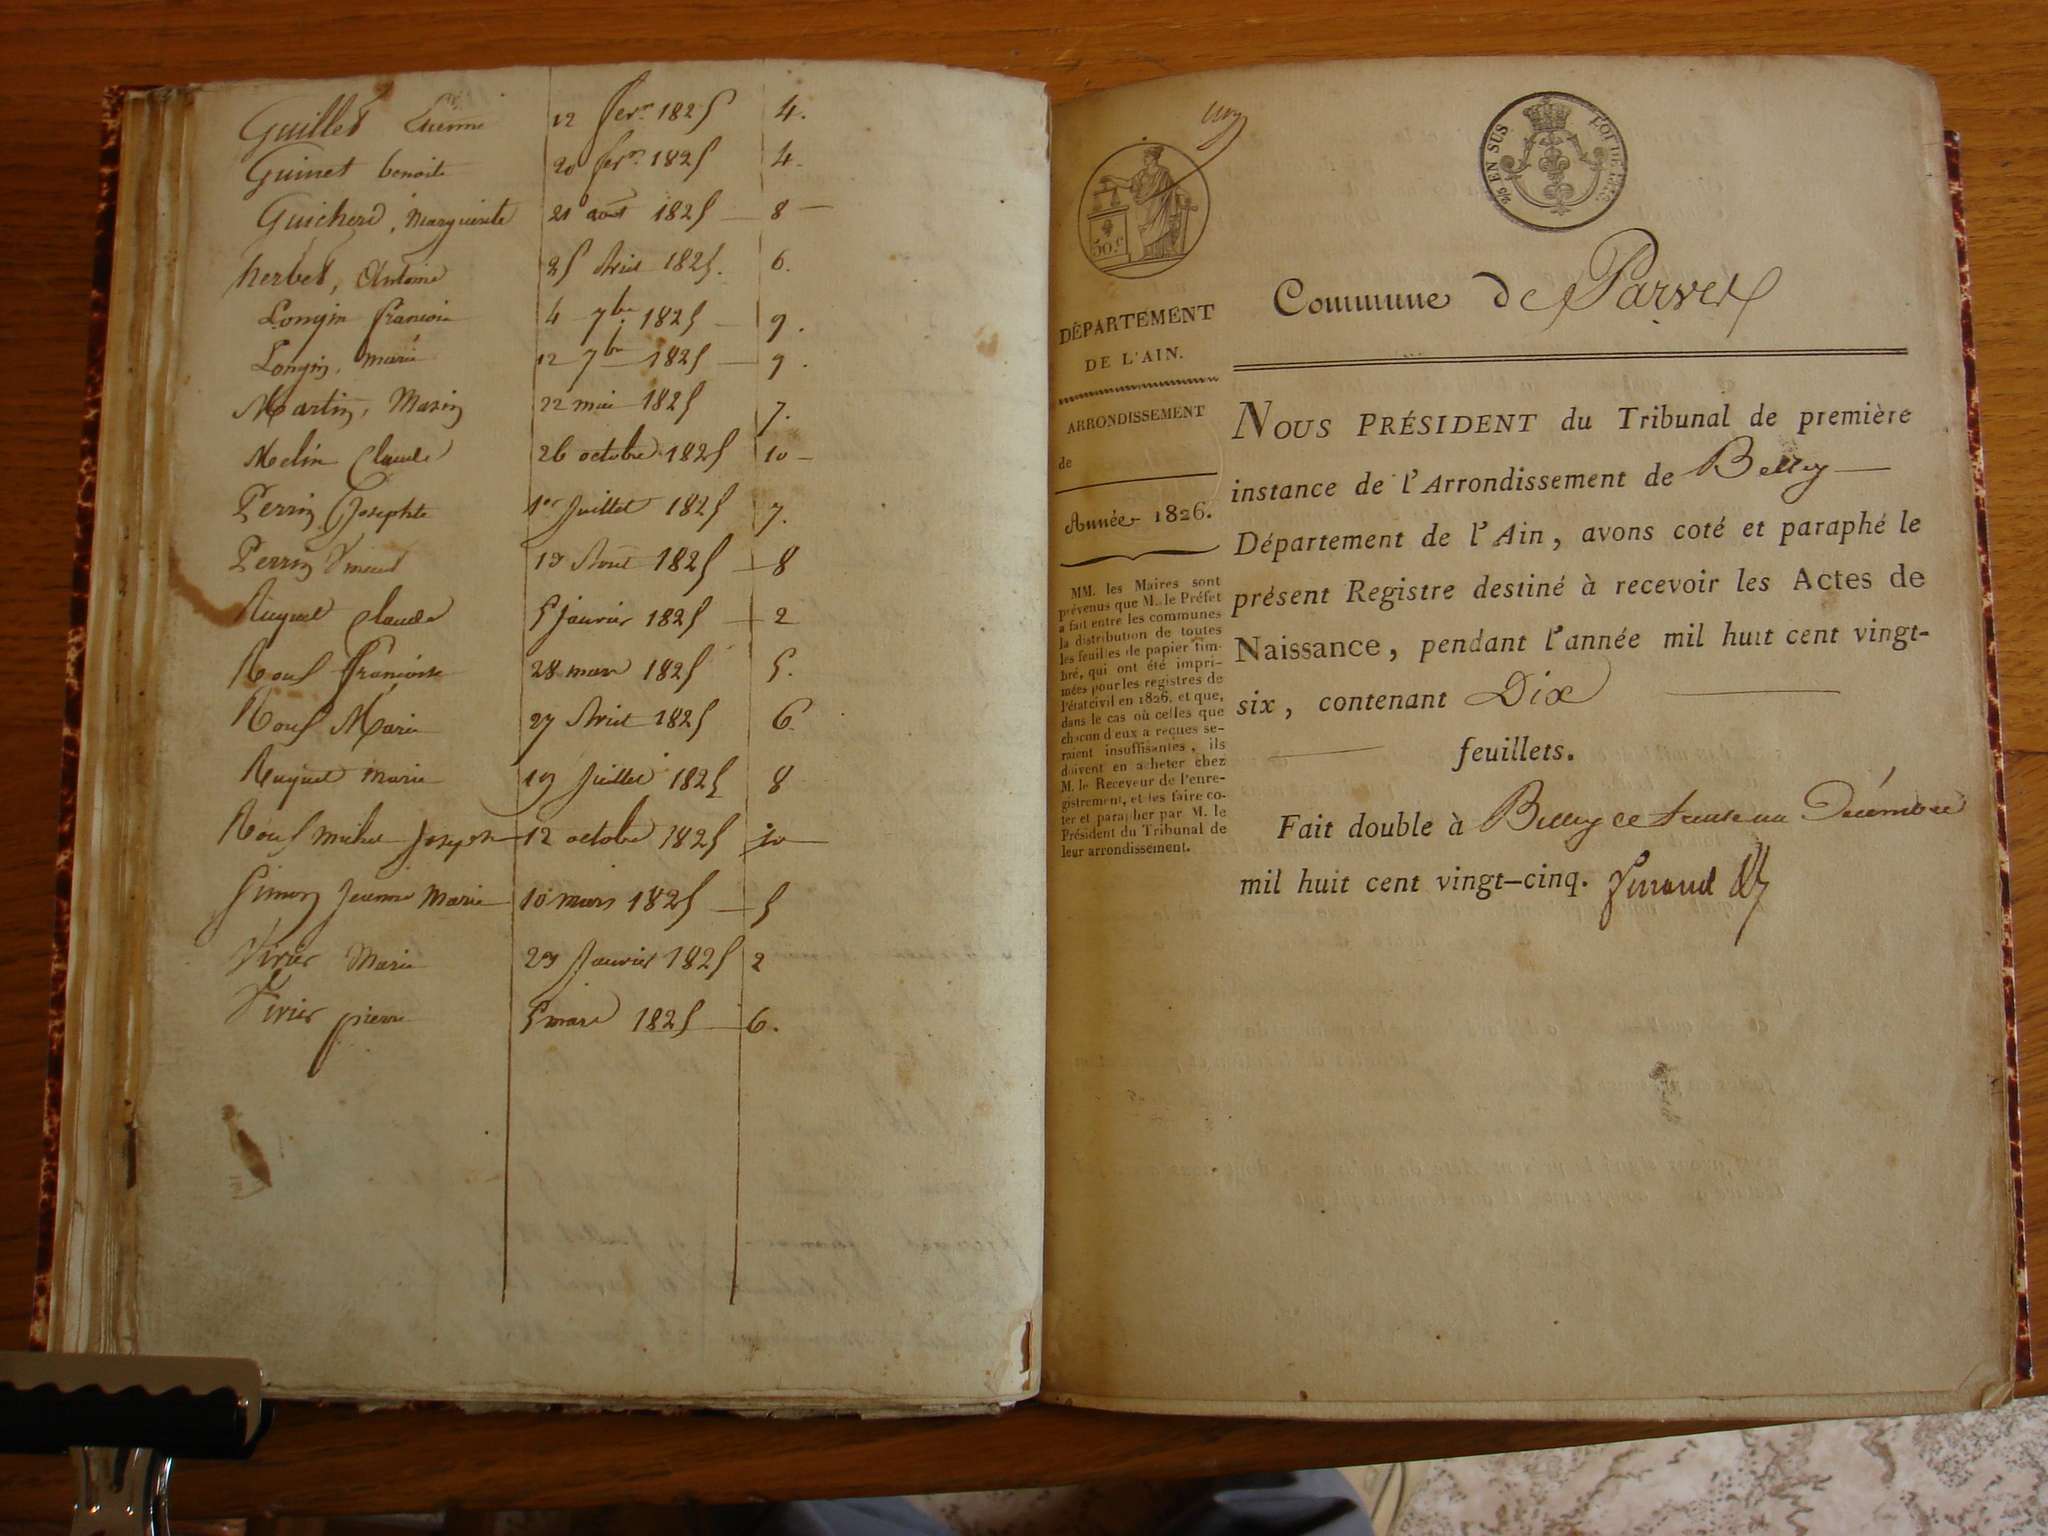 Guillet 12 fevr. 1825 4.
Guinet benoite 20 fevr. 1825 4.
Guicherd, Marguerite 21 aout 1825 8
herbet, Antoine 25 Avril 1825. 6.
Longin francois 4 7bre 1825 9.
Longin, marie 12 7bre 1825 9.
Martin, 22 mai 1825 7.
Melin Claude 26 octobre 1825 10
Perrin Josephte 1er Juillet 1825 7.
Perrin Aout 1825 8
Ruquet Claude 5 janvier 1825 2
Roux francoise 28 mars 1825 5.
Roux Marie 27 Avril 1825 6.
Ruquet marie 19 Juillet 1825 8
Roux michel Joseph 12 octobre 1825 10
Simon Jeanne Marie 10 mars 1825 5
Vivier Marie 29 Janvier 1825 2
Vivier pierre 5 mars 1825 6.
un
50.c
2/10 EN SUS
LOI DE 1816
DÉPARTEMENT
DE L'AIN.
ARRONDISSEMENT
de
Année 1826.
MM. les Maires sont
prévenus que M. le Préfet
a fait entre les communes
la distribution de toutes
les feuilles de papier tim-
bré, qui ont été impri-
mées pour les registres de
l'état civil en 1826, et que,
dans le cas où celles que
chacun d'eux a reçues se-
raient insuffisantes, ils
doivent en acheter chez
M. le Receveur de l'enre-
gistrement, et les faire co-
ter et parapher par M. le
Président du Tribunal de
leur arrondissement.
Commune de Parves
NOUS PRÉSIDENT du Tribunal de première
instance de l'Arrondissement de Belley
Département de l'Ain, avons coté et paraphé le
présent Registre destiné à recevoir les Actes de
Naissance, pendant l'année mil huit cent vingt-
six, contenant Dix
feuillets.
Fait double à Belley ce trente un Décembre
mil huit cent vingt-cinq.